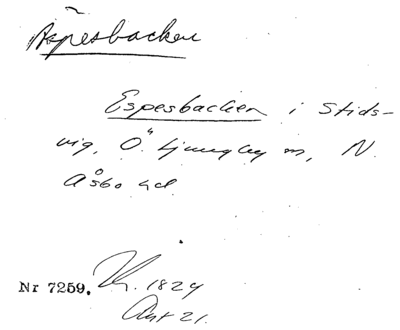 Aspesbacken
Espesbacken i Stids-
vig, Ö. Ljungby sn, N.
Åsbo hd
Nr 7259. 1824
21.